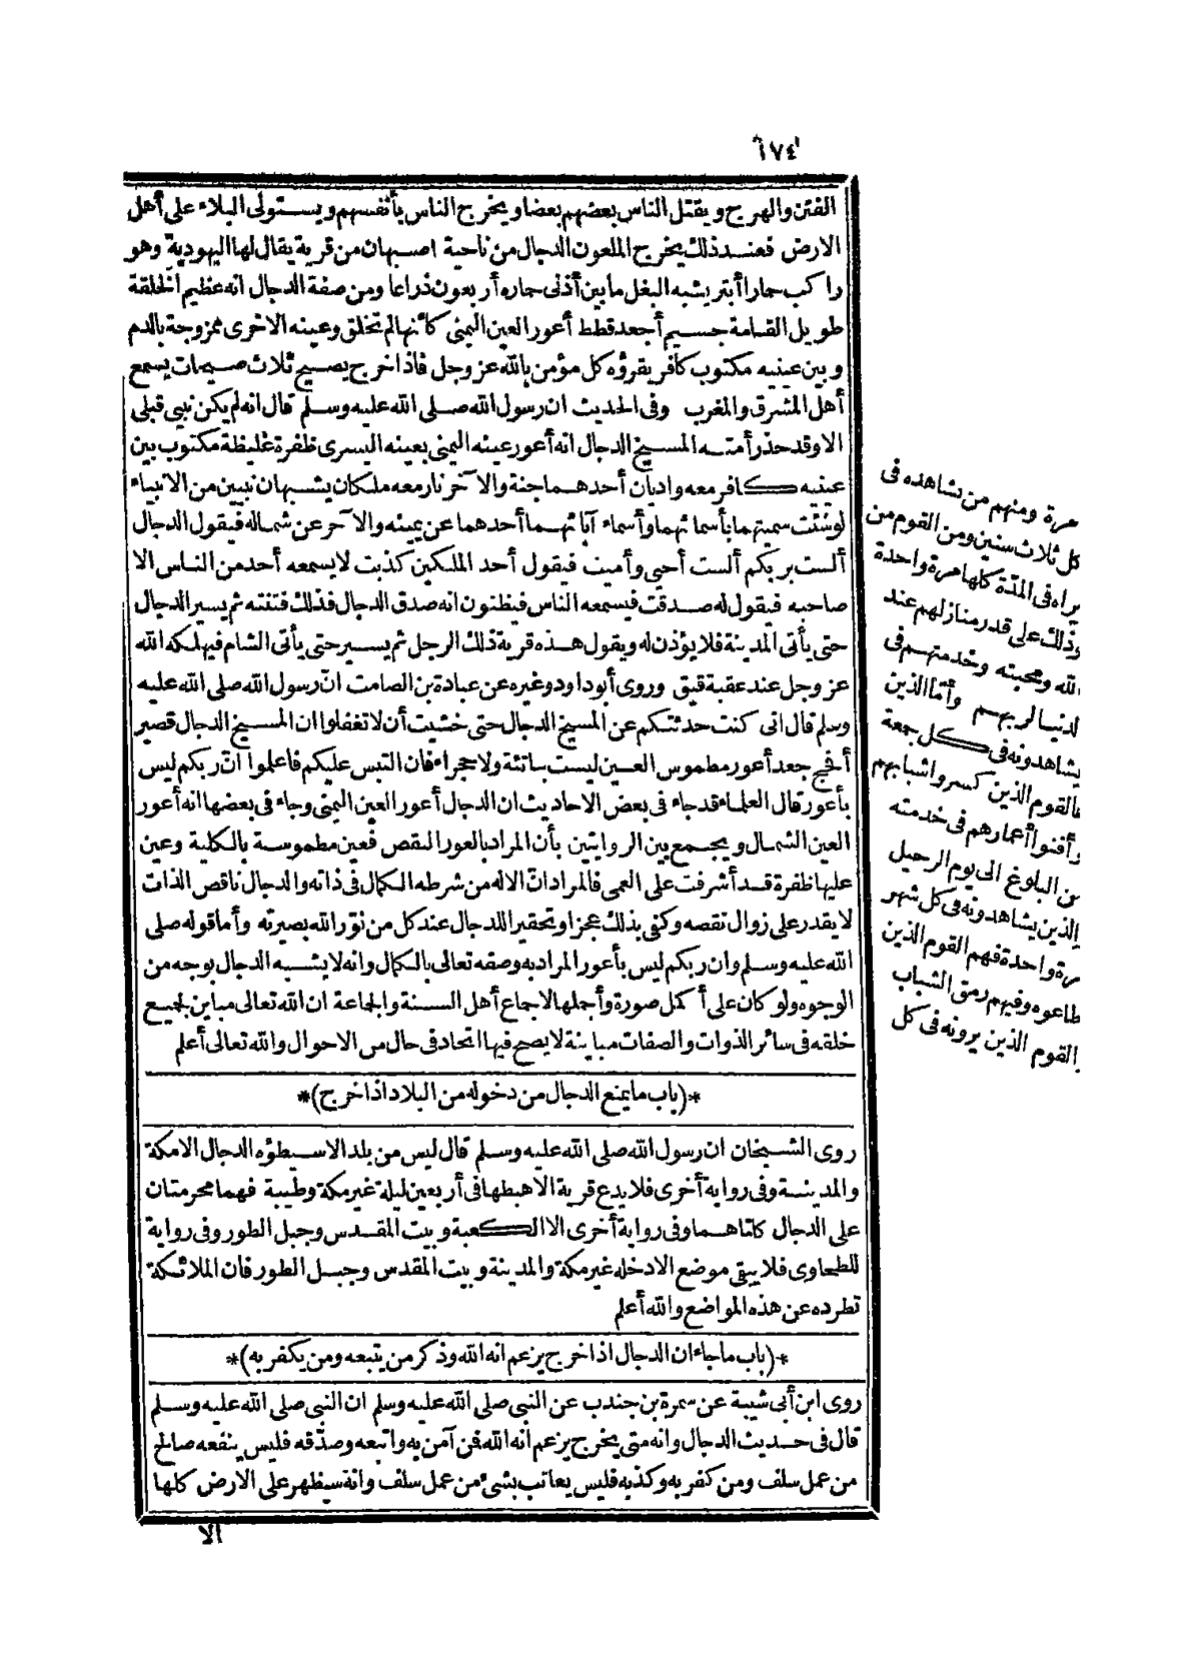 ١٧٤
الفتن والهرج ويقتل الناس بعضهم بعضا ويخرج الناس بأنفسهم ويستولى البلاء على أهل
الارض فعند ذلك يخرج الملعون الدجال من ناحية اصبهان من قرية يقال لها اليهودية وهو
راكب حمارا أبتر يشبه البغل ما بين أذنى حماره أربعون ذراعا ومن صفة الدجال انه عظيم الخلقة
طويل القامة جسيم أجعد قطط أعور العين اليمنى كأنها لم تخلق وعينه الاخرى ممزوجة بالدم
وبين عينيه مكتوب كافر يقرؤه كل مؤمن بالله عز وجل فاذا خرج يصيح ثلاث صيحات يسمع
أهل المشرق والمغرب وفى الحديث ان رسول الله صلى الله عليه وسلم قال انه لم يكن نبى قبلى
الا وقد حذر أمته المسيخ الدجال انه أعور عينه اليمنى بعينه اليسرى ظفرة غليظة مكتوب بين
عينيه كافر معه واديان أحدهما جنة والآخر نار معه ملكان يشبهان نبيين من الانبياء
لو شئت سميتهما بأسمائهما وأسماء آبائهما أحدهما عن يمينه والآخر عن شماله فيقول الدجال
ألست بربكم ألست أحيى وأميت فيقول أحد الملكين كذبت لا يسمعه أحد من الناس الا
صاحبه فيقول له صدقت فيسمعه الناس فيظنون انه صدق الدجال فذلك فتنته ثم يسير الدجال
حتى يأتى المدينة فلا يؤذن له ويقول هذه قرية ذلك الرجل ثم يسير حتى يأتى الشام فيهلكه الله
عز وجل عند عقبة فيق وروى أبو داود وغيره عن عبادة بن الصامت انّ رسول الله صلى الله عليه
وسلم قال انى كنت حدثتكم عن المسيخ الدجال حتى خشيت أن لا تغفلوا ان المسيخ الدجال قصير
أفحج جعد أعور مطموس العين ليست بناتئة ولا حجراء فان التبس عليكم فاعلموا انّ ربكم ليس
بأعور قال العلماء قد جاء فى بعض الاحاديث ان الدجال أعور العين اليمنى وجاء فى بعضها انه أعور
العين الشمال ويجمع بين الروايتين بأن المراد بالعور النقص فعين مطموسة بالكلية وعين
عليها ظفرة قد أشرفت على العمى فالمراد انّ الاله من شرطه الكمال فى ذاته والدجال ناقص الذات
لا يقدر على زوال نقصه وكفى بذلك عجزا وتحقير اللدجال عند كل من نوّر الله بصيرته وأما قوله صلى
الله عليه وسلم وان ربكم ليس بأعور المراد به وصفه تعالى بالكمال وانه لا يشبه الدجال بوجه من
الوجوه ولو كان على أكمل صورة وأجملها لاجماع أهل السنة والجماعة ان الله تعالى مباين لجميع
خلقه فى سائر الذوات والصفات مباينة لا يصح فيها اتحاد فى حال من الاحوال والله تعالى أعلم
*(باب ما يمنع الدجال من دخوله من البلاد اذا خرج)*
روى الشيخان ان رسول الله صلى الله عليه وسلم قال ليس من بلد الا سيطؤه الدجال الا مكة
والمدينة وفى رواية أخرى فلا يدع قرية الا هبطها فى أربعين ليلة غير مكة وطيبة فهما محرمتان
على الدجال كلتاهما وفى رواية أخرى الا الكعبة وبيت المقدس وجبل الطور وفى رواية
للطحاوى فلا يبقى موضع الا دخله غير مكة والمدينة وبيت المقدس وجبل الطور فان الملائكة
تطرده عن هذه المواضع والله أعلم
*(باب ما جاء ان الدجال اذا خرج يزعم انه الله وذكر من يتبعه ومن يكفر به)*
روى ابن أبى شيبة عن سمرة بن جندب عن النبى صلى الله عليه وسلم ان النبى صلى الله عليه وسلم
قال فى حديث الدجال وانه متى يخرج يزعم انه الله فمن آمن به واتبعه وصدّقه فليس ينفعه صالح
من عمل سلف ومن كفر به وكذبه فليس يعاتب بشئ من عمل سلف وانه سيظهر على الارض كلها
الا
مرة ومنهم من يشاهده فى
كل ثلاث سنين ومن القوم من
يراه فى المدّة كلها مرة واحدة
وذلك على قدر منازلهم عند
الله ومحبته وخدمتهم فى
لدنيا لربهم وأمّا الذين
يشاهدونه فى كل جمعة
فالقوم الذين كسروا شبابهم
وأفنوا أعمارهم فى خدمته
من البلوغ الى يوم الرحيل
الذين يشاهدونه فى كل شهر
مرة واحدة فهم القوم الذين
طاعوه وفيهم رمق الشباب
القوم الذين يرونه فى كل